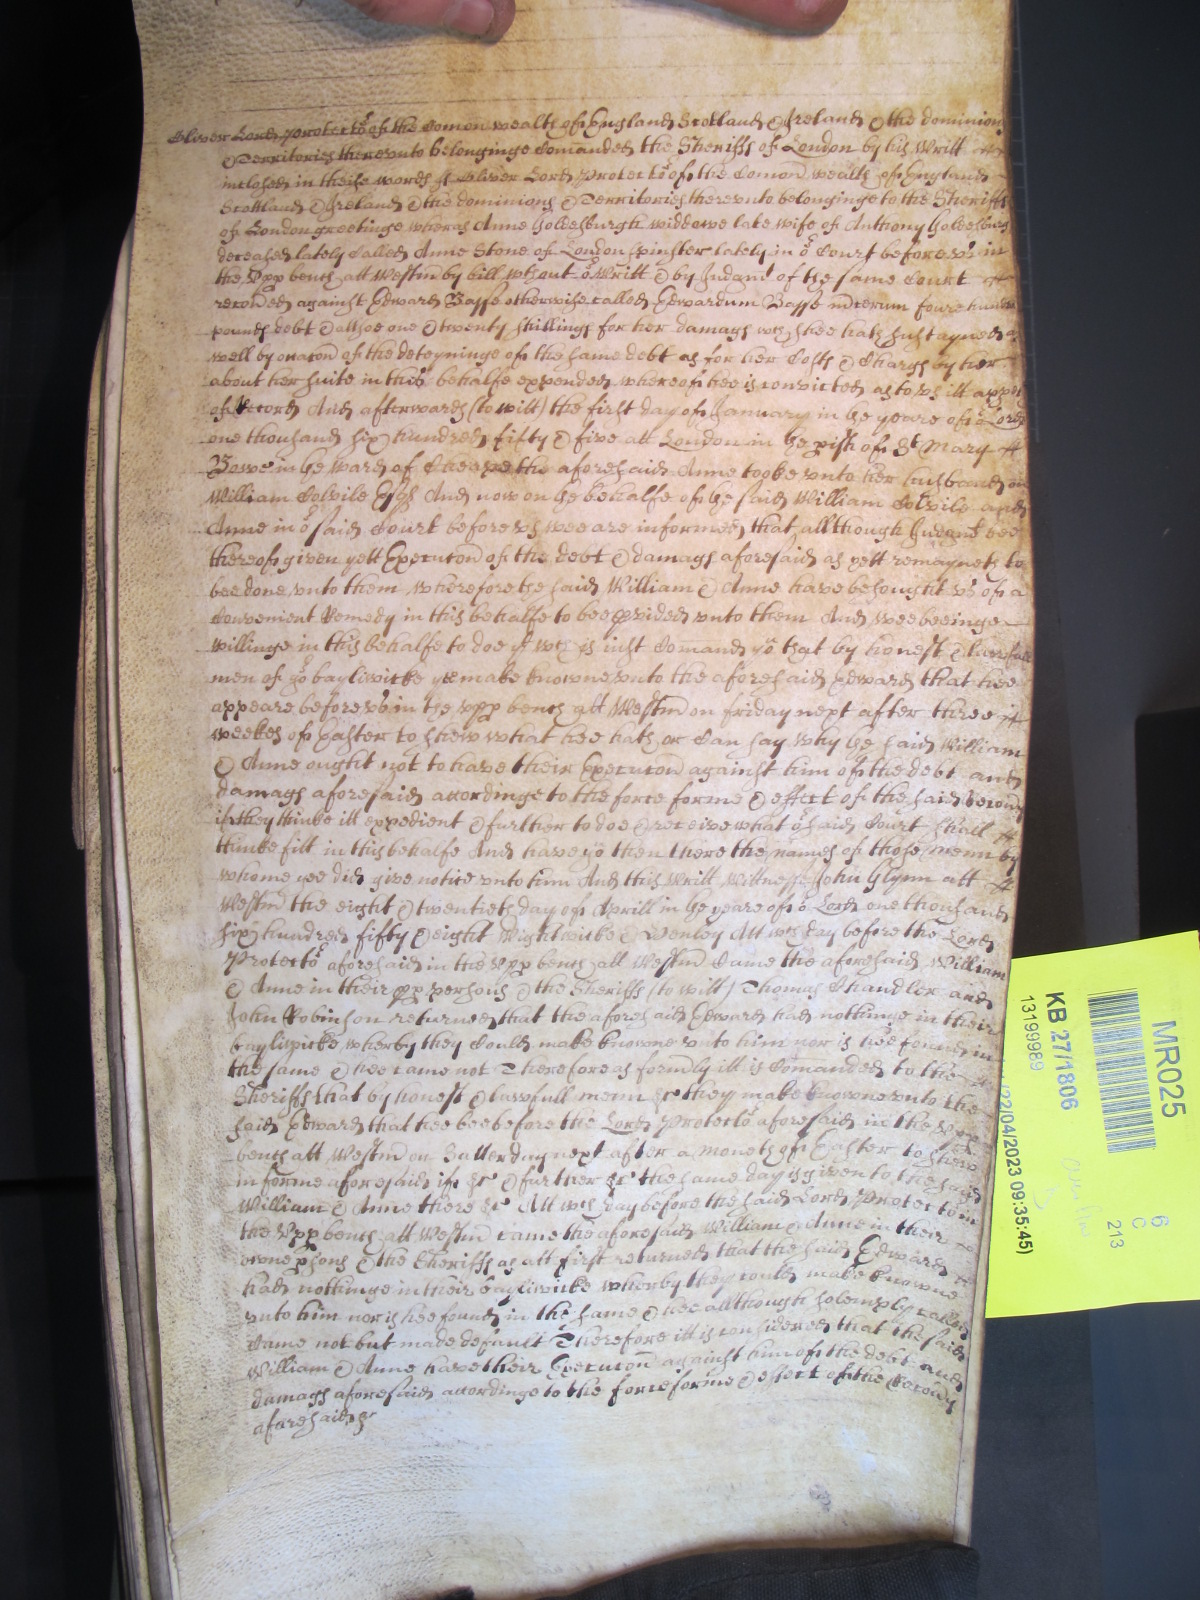 Oliver Lord Protector of the Comon wealth of England Scotland & Ireland & the dominions
& Territories thereunto belonginge Comanded the Sheriffs of London by his Writt
inclosed in theise words ss Oliver Lord Protector of the Comon wealth of England
Scotland & Ireland & the dominions & Territories thereunto belonginge to the Sheriffs
of London greetinge wheras Anne Goldesburgh widdowe late wife of Anthony Goldesburgh
deceased lately called Anne Stone of London spinster lately in or Court before us in
the Upp bench att Westm by bill wthout or Writt & by Judgmt of the same Court
recovered against Edward Basse otherwise called Edwardum Basse foure hundred
pounds debt & alsoe one & twenty shillings for her damags wch shee hath sustayned as
well by occacon of the deteyninge of the same debt as for her Costs & Chargs by her
about her suite in this behalfe expended whereof hee is convicted as to us itt appeares
of Record And afterwards (to witt) the first day of January in the yeare of or Lord
one thousand six hundred fifty & five att London in the pish of St Mary
Bowe in the ward of Cheape the aforesaid Anne tooke unto her husband on
William Colvile Esqr And now on the behalfe of the said William Colvile and
Anne in or said Court before us wee are informed that allthough Judgmt bee
thereof given yett Execucon of the debt & damags aforesaid as yett remayneth to
bee done unto them wherefore the said William & Anne have besought us of a
Convenient Remedy in this behalfe to bee pvided unto them And wee beeinge
willinge in this behalfe to doe yt wch is iust Comand yo that by honest & lawfull
men of yor bayliwicke yee make knowne unto the aforesaid Edward that hee
appeare before us in the upp bench att Westm on friday next after three
weekes of Easter to shew what hee hath or Can say why the said William
& Anne ought not to have their Execucon against him of the debt and
damags aforesaid accordinge to the force forme & effect of the said Recovery
if they thinke itt expedient & further to doe & receive what or said Court shall
thinke fitt in this behalfe And have yo then there the names of those menn by
whome yee did give notice unto him And this Writt Wittnesse John Glynn att
Westm the eight & twentieth day of Aprill in the yeare of or Lord one thousand
six hundred fifty & eight Wightwicke & Henley Att wch day before the Lord
Protector aforesaid in the Upp bench att Westm Came the aforesaid William
& Anne in their pp persons & the Sheriffs (to witt) Thomas Chandler and
John Robinson returned that the aforesaid Edward had nothinge in their
bayliwicke wherby they Could make knowne unto him nor is hee found in
the same & hee came not Therefore as formly itt is Comanded to the
Sheriffs that by honest & lawfull menn &c they make knowne unto the
said Edward that hee bee before the Lord Protector aforesaid in the Upp
bench att Westm on Satterday next after a moneth of Easter to shew
in forme aforesaid if &c & further &c the same day is given to the said
William & Anne there &c Att wch day before the said Lord Protector in
the Upp bench att Westm came the aforesaid William & Anne in their
owne psons & the Sheriffs as att first returned that the said Edward
had nothinge in their bayliwicke wherby they could make knowne
unto him nor is hee found in the same & hee allthough solemply called
Came not but made default Therefore itt is considered that the said
William & Anne have their Execucon against him of the debt and
damags aforesaid accordinge to the force forme & effect of the Recovery
aforesaid &c
MR025
KB 27/1806
13199989
22/04/2023 09:35:45)
6
C
213